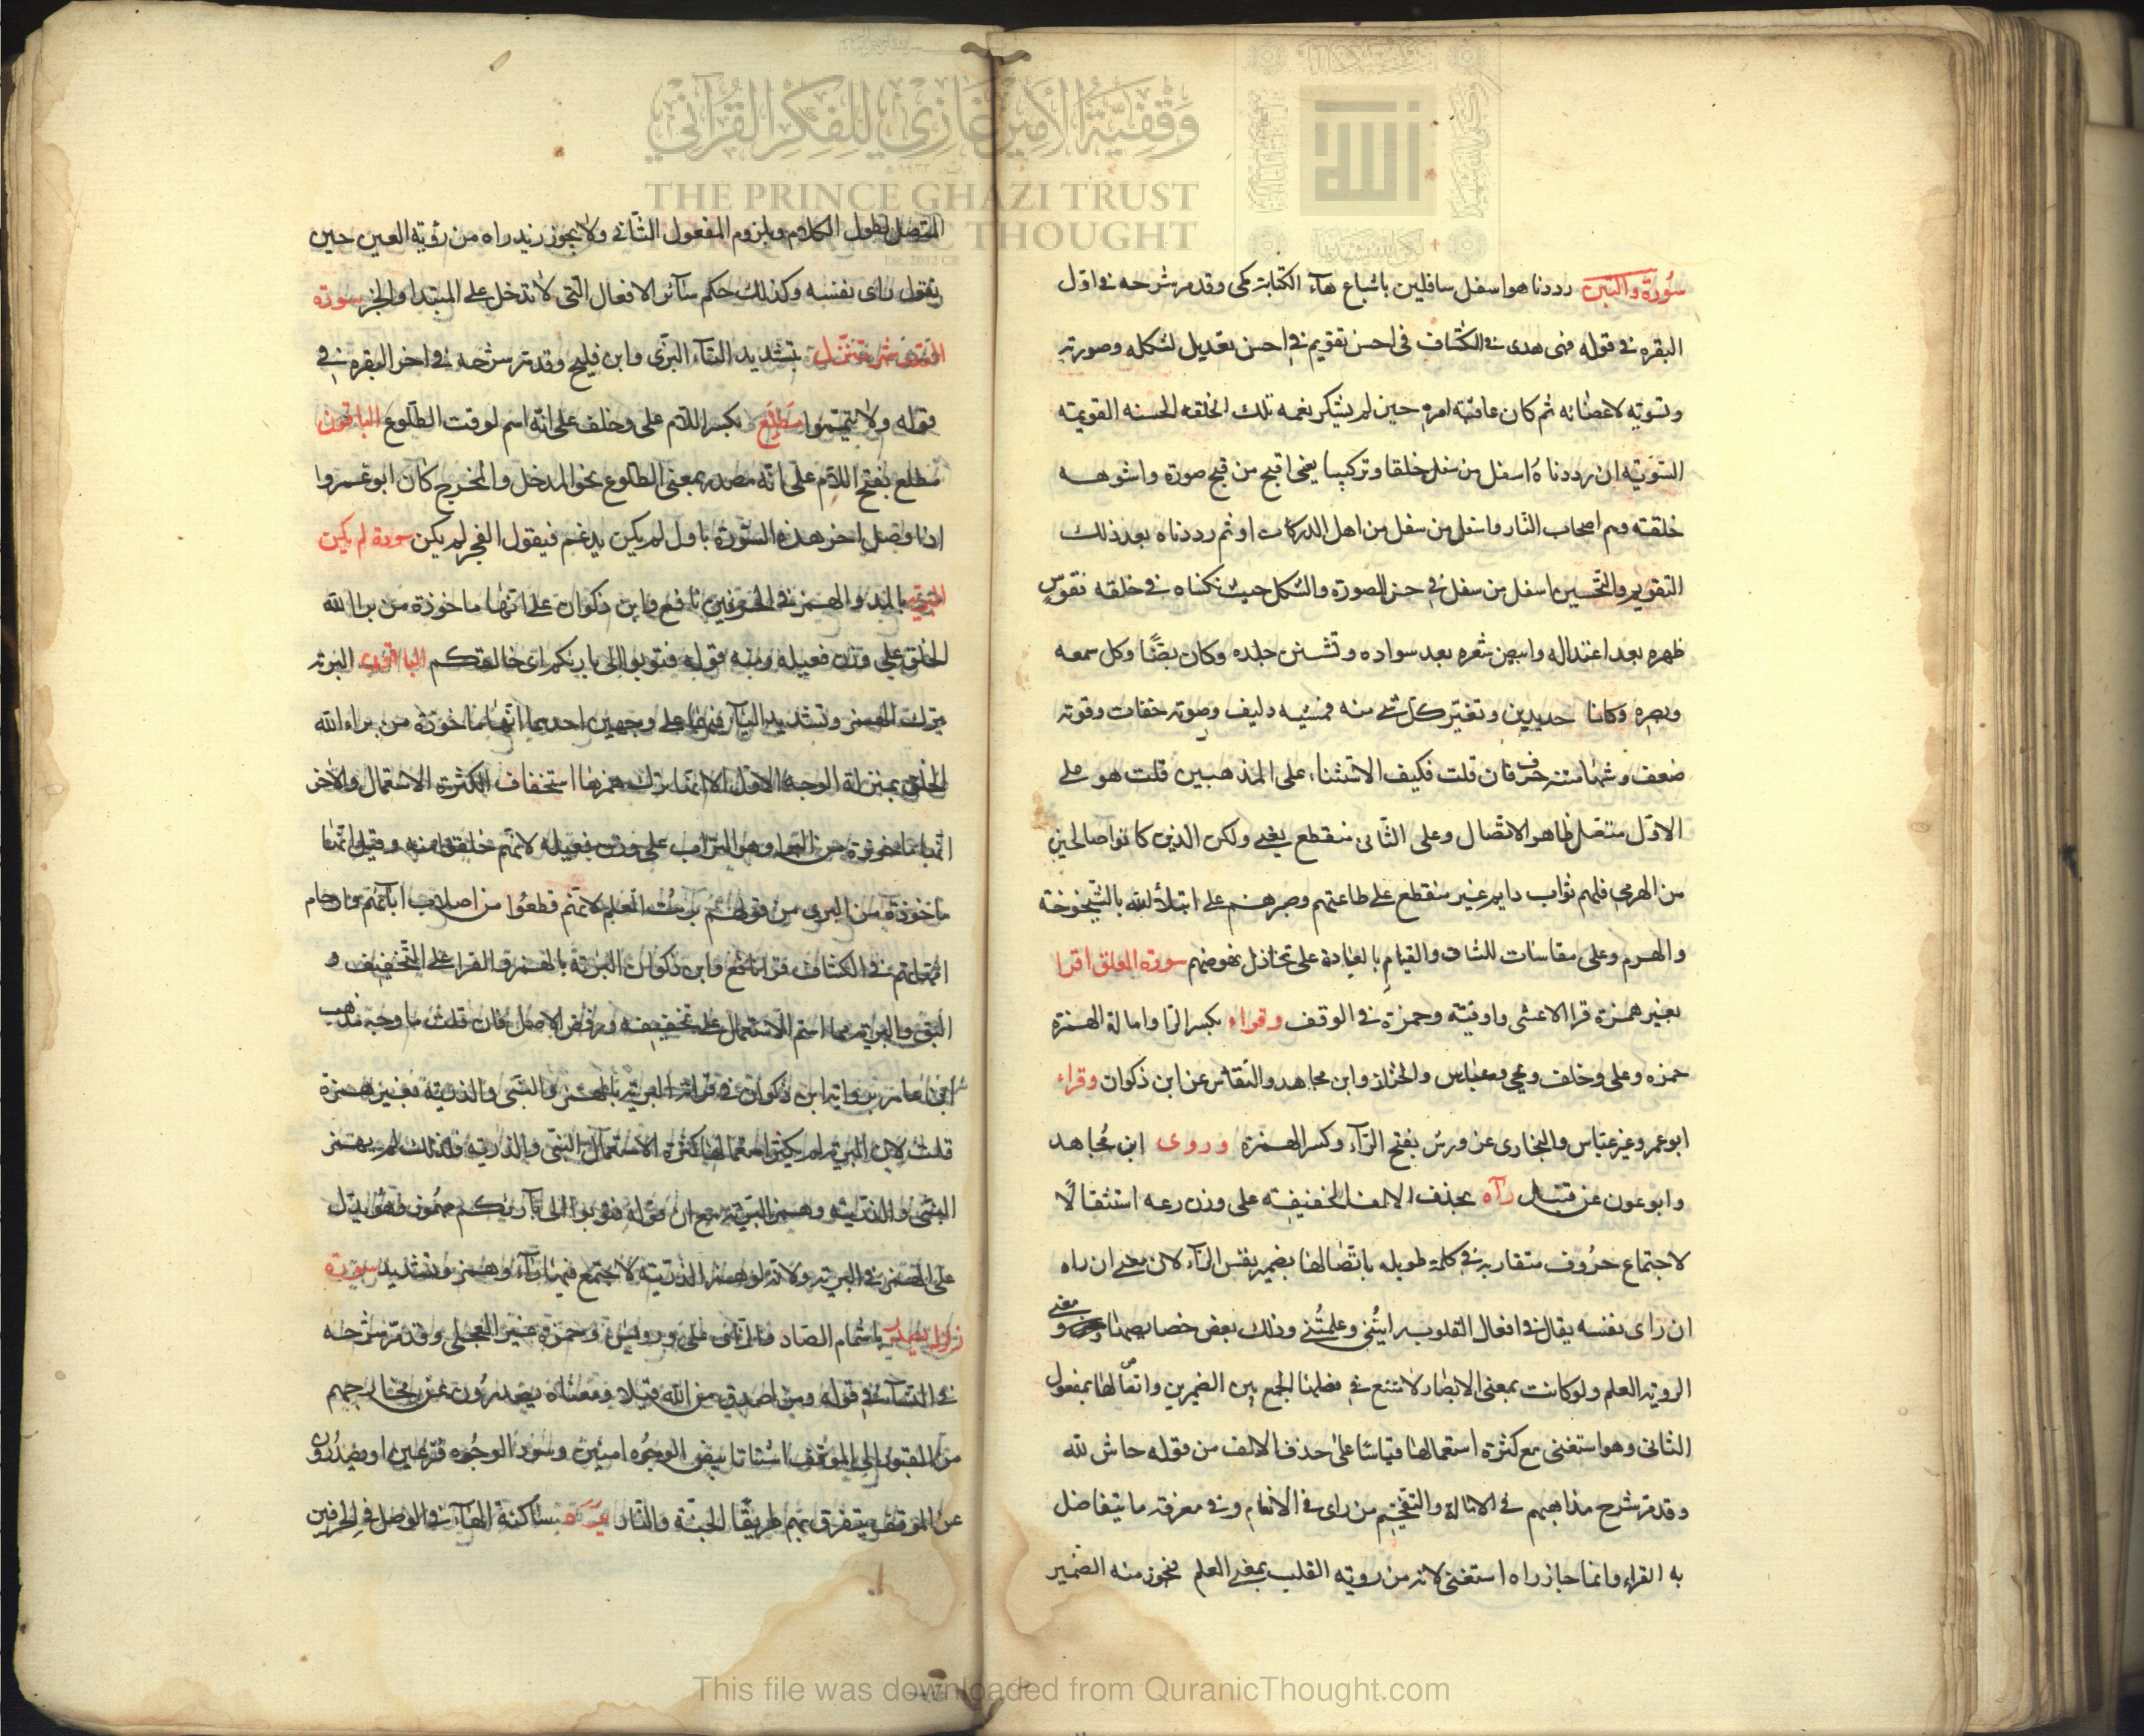 سورة والتين رددناه اسفل سافلين باشباع هآء الكتابة مكى وقد مر شرحه فى اول
البقره فى قوله فيه هدى فى الكشاف فى احسن تقويم فى احسن تعديل لشكله وصورته
وتسويه لاعضائه ثم كان عاقبة امره حين لم يشكر نعمه تلك الخلقه الحسنه القويمه
السويه ان رددناه اسفل من سفل خلقا وتركيبا يعنى اقبح من قبح صورة واشوهه
خلقته وهم اصحاب النار واسفل من سفل من اهل الدركات او ثم رددناه بعد ذلك
التقويم والتحسين اسفل من سفل فى حسن الصورة والشكل حيث نكسناه فى خلقه فقوس
ظهره بعد اعتداله وابيض شعره بعد سواده وتشنن جلده وكان بضًا وكل سمعه
وبصره وكانا حديدين وتغير كل شى منه فمشيه دليف وصوته خفات وقوته
ضعف وشهامته خرف فان قلت فكيف الاستثناء على المذهبين قلت هو على
الاول متصل ظاهر الاتصال وعلى الثانى منقطع يعنى ولكن الذين كانوا صالحين
من الهرمى فلهم ثواب دايم غير منقطع على طاعتهم وصبرهم على ابتلآء الله بالشيخوخة
والهرم وعلى مقاسات المشاق والقيام بالعبادة على تخاذل نهوضهم سورة العلق اقرا
بغير همزة قرا الاعشى واوقية وحمزة فى الوقف وقراء بكسر الرا وامالة الهمزة
حمزه وعلى وخلف ويحيى وعباس والخزاز وابن مجاهد والنقاش عن ابن ذكوان وقراء
ابو عمرو غير عباس والبخارى عن ورش بفتح الرآء وكسر الهمزة وروى ابن مجاهد
وابو عون عن قنبل رآه بحذف الالف الخفيفة على وزن رعه استثقالًا
لاجتماع حروف متقاربه فى كلمة طويله باتصالها بضمير نفس الرآء لان معنى ان راه
ان راى نفسه يقال فى افعال القلوب رايتنى وعلمتنى وذلك بعض خصايصها ومعنى
الروية العلم ولو كانت بمعنى الابصار لامتنع فى فعلها الجمع بين الضميرين واتصالها بمفعول
الثانى وهو استغنى مع كثرة استعمالها قياسًا على حذف الالف من قوله حاش لله
وقد مر شرح مذاهبهم فى الامالة والتفخيم من راى فى الانعام وفى معرفة ما يتفاضل
به القراء وانما جاز راه استغنى لانه من روية القلب بمعنى العلم فيجوز منه الضمير
المتصل لطول الكلام ولزوم المفعول الثانى ولا يجوز زيد راه من روية العين حين
تقول راى نفسه وكذلك حكم سآئر الافعال التى لا تدخل على المبتدا والخبر سورة
القدر شهر تنزل بتشديد التآء البزى وابن فليح وقد مر شرحه فى اخر البقره فى
قوله ولا تيمموا مطلع بكسر اللام على وخلف على انه اسم لوقت الطلوع الباقون
مطلع بفتح اللام على انه مصدر بمعنى الطلوع نحو المدخل والمخرج كان ابو عمرو
اذا وصل اخر هذه السورة باول لم يكن يدغم فيقول الفجر لم يكن سورة لم يكن
البرية بالمد والهمز فى الحرفين نافع وابن ذكوان على انها ماخوذة من برا الله
الخلق على وزن فعيله ومنه قوله فتوبوا الى باريكم اى خالقكم الباقون البرية
بترك الهمز وتشديد اليآء فيهما على وجهين احدهما انها ماخوذة من براء الله
الخلق بمنزلة الوجه الاول الا انما ترك همزها استخفافا لكثرة الاستعمال والاخر
انها ماخوذة من البرا وهو التراب على وزن فعيله لانهم خلقوا منه وقيل انها
ماخوذة من البرى من قولهم بريت القلم لانهم قطعوا من اصلاب ابآئهم وارحام
امهاتهم فى الكشاف قرا نافع وابن ذكوان البرية بالهمز والقرا على التخفيف و
النبى والبرية مما استمر الاستعمال على تخفيفه ورفض الاصل فان قلت ما وجه مذهب
ابن عامر برواية ابن ذكوان فى قرائة البرية بالهمز والنبى والذرية بغير همزة
قلت لان البرية لم يكثر استعمالها كثرة الاستعمال النبى والذرية فلذلك لم يهمز
النبى والذرية وهمز البرية مع ان قوله فتوبوا الى باريكم مهموز وهو يدل
على الهمز فى البرية ولانه لو همز الذرية لاجتمع فيها رآء وهمز وتشديد سورة
زلزل يصدر باشمام الصاد فالزاى على ورويس وحمزة غير العجلى وقد مر شرحه
فى النسآء فى قوله ومن اصدق من الله قيلا ومعناه يصدرون عن مخارجهم
من القبور الى الموقف اشتاتا بيض الوجوه امنين وسود الوجوه فزعين او يصدرون
عن الموقف يتفرق بهم طريقا الجنة والنار يره ساكنة الهآء فى الوصل فى الحرفين
وقفية الأمير غازي للفكر القرآني
THE PRINCE GHAZI TRUST
THOUGHT
This file was downloaded from QuranicThought.com